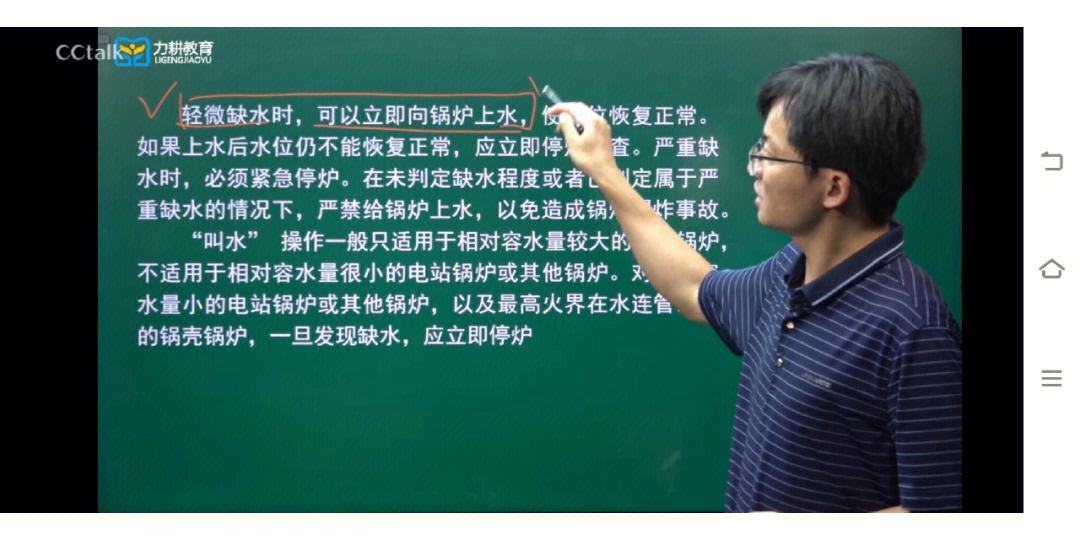 CCtalk
力耕教育
LIGENGJIAOYU
轻微缺水时，可以立即向锅炉上水，使 位恢复正常。
如果上水后水位仍不能恢复正常，应立即停 查。严重缺
水时，必须紧急停炉。在未判定缺水程度或者已 判定属于严
重缺水的情况下，严禁给锅炉上水，以免造成锅 炸事故。
“叫水” 操作一般只适用于相对容水量较大的 锅炉，
不适用于相对容水量很小的电站锅炉或其他锅炉。对
水量小的电站锅炉或其他锅炉，以及最高火界在水连管
的锅壳锅炉，一旦发现缺水，应立即停炉